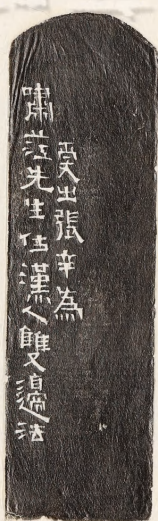 受之張辛為
嘯莅先生作漢人雙邊法